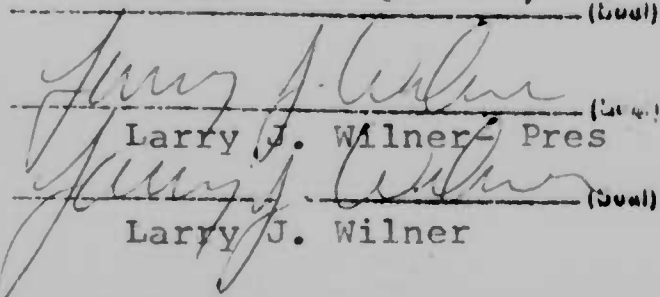 (Seal)
Larry J. Wilner (Seal)
Larry J. Wilner- Pres
Larry J. Wilner (Seal)
Larry J. Wilner